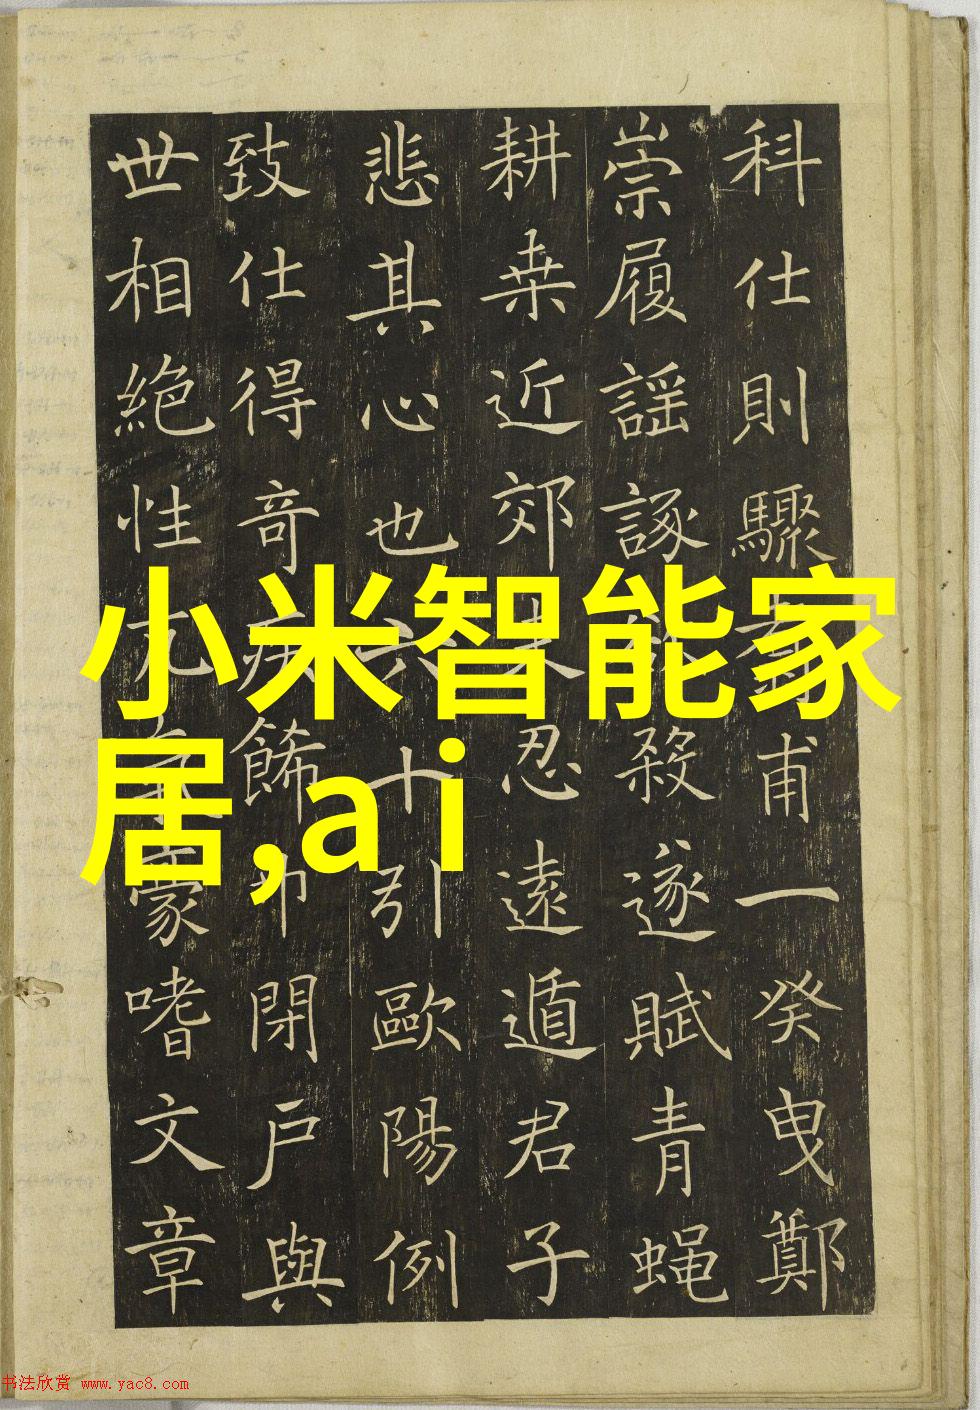 科仕則驟甫一癸曳鄭
崇履謡諑殺遂賦青蝇
耕桒近郊忍遠遁君子
悲其心也六十引歐陽例
致仕得奇疾餙閉戸與
世相絶性亢豪嗜文章
小米智能家
居,ai
书法欣赏 www.yac8.com